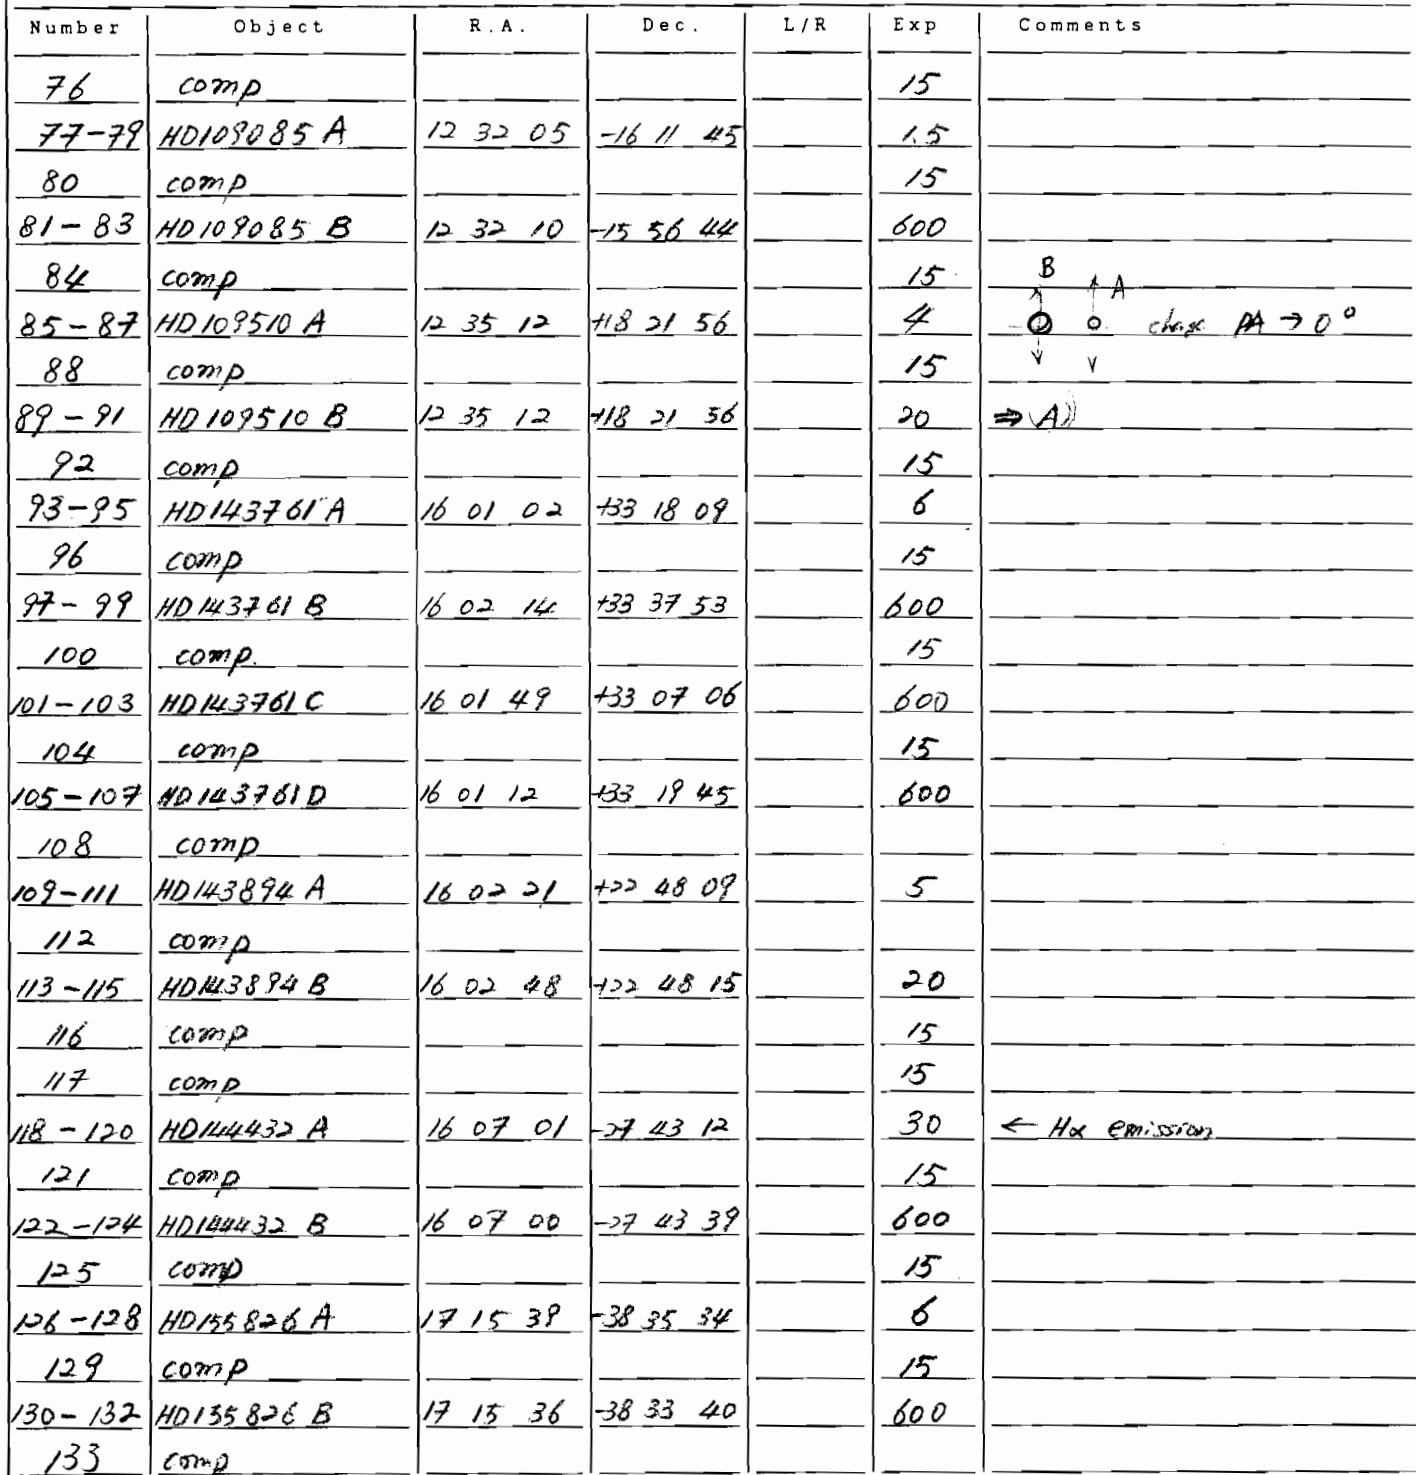 Number Object R.A. Dec. L/R Exp Comments
76 comp 15
77-79 HD109085 A 12 32 05 -16 11 45 1.5
80 comp 15
81-83 HD109085 B 12 32 10 -15 56 44 600
84 comp 15 B A
85-87 HD109510 A 12 35 12 +18 21 56 4 PA → 0°
88 comp 15
89-91 HD109510 B 12 35 12 +18 21 56 20 ⇒ (A))
92 comp 15
93-95 HD143761 A 16 01 02 +33 18 09 6
96 comp 15
97-99 HD143761 B 16 02 14 +33 37 53 600
100 comp. 15
101-103 HD143761 C 16 01 49 +33 07 06 600
104 comp 15
105-107 HD143761 D 16 01 12 +33 19 45 600
108 comp
109-111 HD143894 A 16 02 21 +22 48 09 5
112 comp
113-115 HD143894 B 16 02 48 +22 48 15 20
116 comp 15
117 comp 15
118-120 HD144432 A 16 07 01 -27 43 12 30 ← Hα emission
121 comp 15
122-124 HD144432 B 16 07 00 -27 43 39 600
125 comp 15
126-128 HD155826 A 17 15 39 -38 35 34 6
129 comp 15
130-132 HD155826 B 17 15 36 -38 33 40 600
133 comp